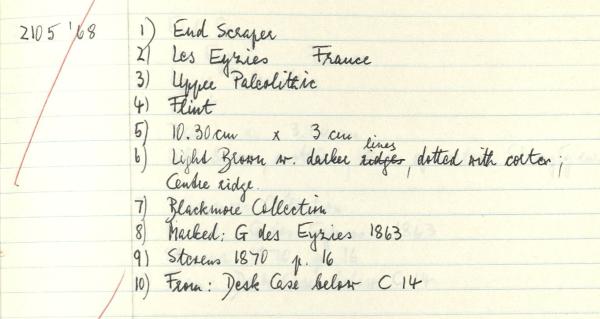 2105 '68
1) End Scraper
2) Les Eyzies France
3) Upper Paleolithic
4) Flint
5) 10.30cm x 3 cm
lines
6) Light Brown w. darker ridges, dotted with cortex;
Centre ridge.
7) Blackmore Collection
8) Marked: G des Eyzies 1863
9) Stevens 1870 p. 16
10) From: Desk Case below C 14